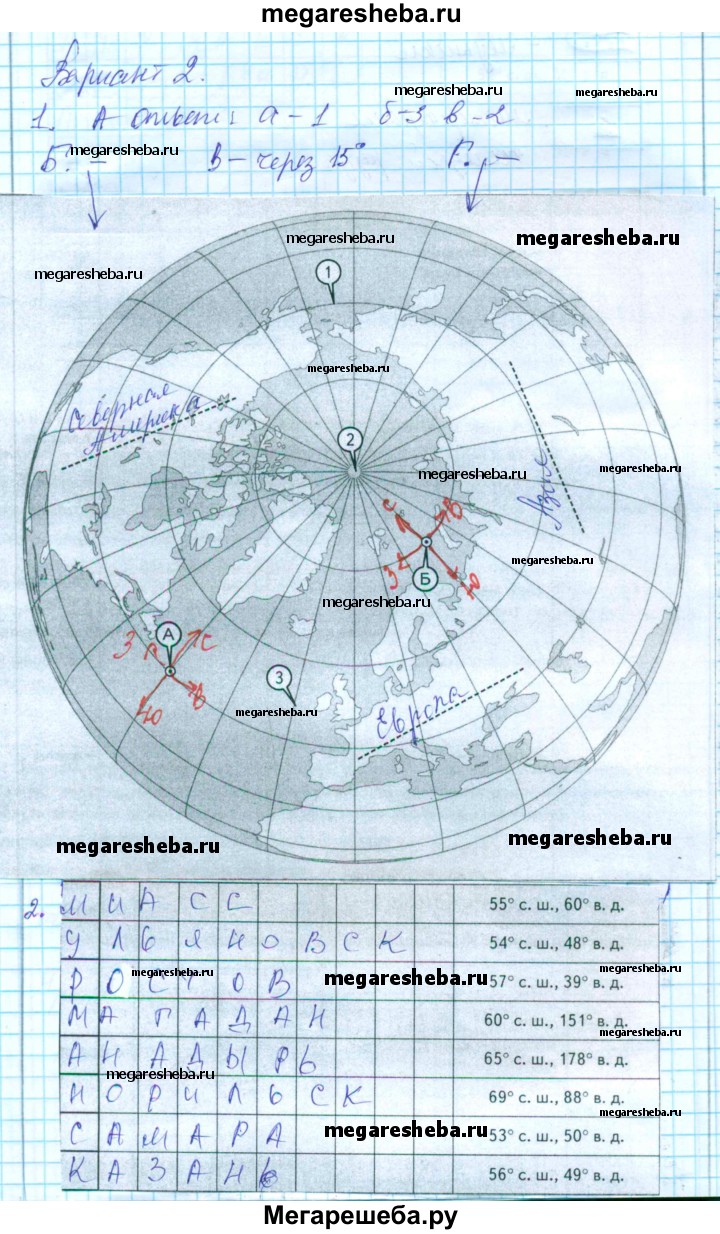 megaresheba.ru
Вариант 2.
megaresheba.ru
megaresheba.ru
1. А ответ: а – 1 б–3 в–2
Б. – megaresheba.ru В – через 15° Г. –
megaresheba.ru
megaresheba.ru
megaresheba.ru
1
megaresheba.ru
Северная
Америка
2
megaresheba.ru
megaresheba.ru
Азия
С В
megaresheba.ru
З Ю
Б
megaresheba.ru
А
З С
3
Ю В
megaresheba.ru
Европа
megaresheba.ru
megaresheba.ru
megaresheba.ru
2. МИАСС 55° с. ш., 60° в. д.
УЛЬЯНОВСК 54° с. ш., 48° в. д.
megaresheba.ru
megaresheba.ru
megaresheba.ru
РОСТОВ 57° с. ш., 39° в. д.
МАГАДАН 60° с. ш., 151° в. д.
megaresheba.ru
АНАДЫРЬ 65° с. ш., 178° в. д.
megaresheba.ru
НОРИЛЬСК 69° с. ш., 88° в. д.
megaresheba.ru
САМАРА 53° с. ш., 50° в. д.
megaresheba.ru
КАЗАНЬ 56° с. ш., 49° в. д.
Мегарешеба.ру